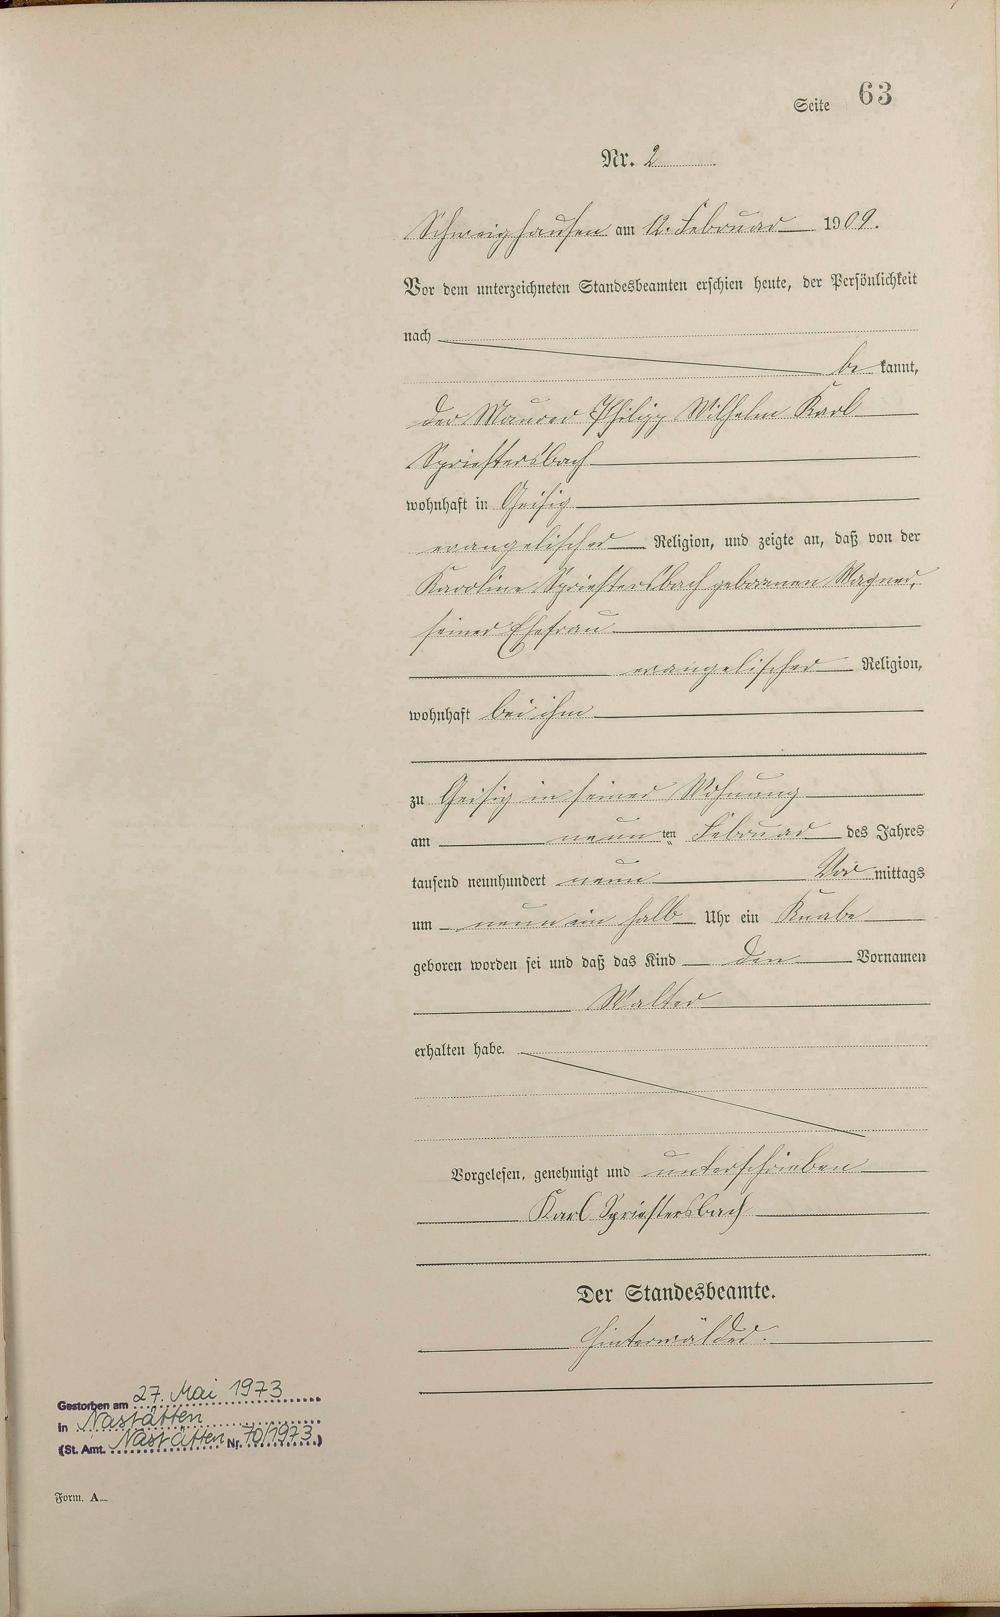 Seite 63
Nr. 2
Schweighausen am 12. Februar 1909.
Vor dem unterzeichneten Standesbeamten erschien heute, der Persönlichkeit
nach
bekannt,
der Maurer Philipp Wilhelm Karl
Spriestersbach
wohnhaft in Geisig
evangelischer Religion, und zeigte an, daß von der
Karoline Spriestersbach geborenen Wagner,
seiner Ehefrau
evangelischer Religion,
wohnhaft bei ihm
zu Geisig in seiner Wohnung
am neunten Februar des Jahres
tausend neunhundert neun Vormittags
um neun ein halb Uhr ein Knabe
geboren worden sei und daß das Kind den Vornamen
Walter
erhalten habe.
Vorgelesen, genehmigt und unterschrieben
Karl Spriestersbach
Der Standesbeamte.
Hinterwälder.
Gestorben am 27. Mai 1973
in Nastätten
(St. Amt. Nastätten Nr. 70/1973)
Form. A